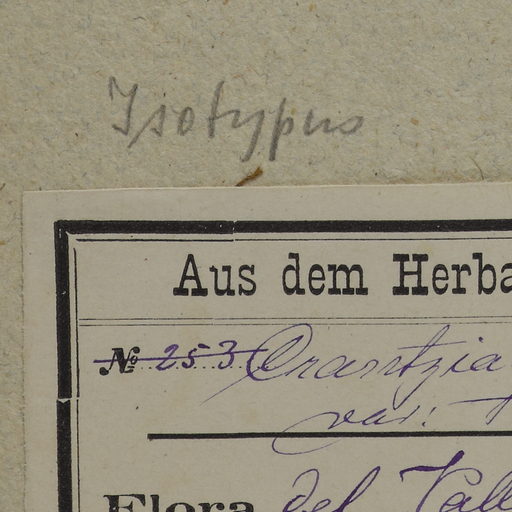 Isotypus
Aus dem Herba
№ 253 Crantzia
var:
Flora del Vall